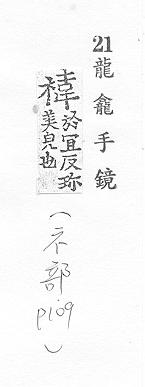 21龍龕手鏡
褘於宜反珎
美皃也
(衣部
p109)